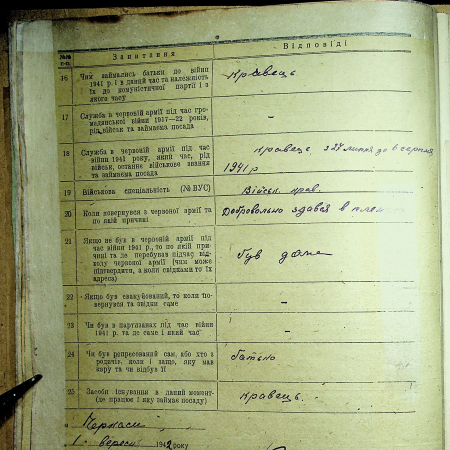 №№ п-п
Запитання
Відповіді
16
Чим займались батьки до війни
1941 р. і в даний час та належність
їх до комуністичної партії і з
якого часу
Кравець
17
Служба в червоній армії під час гро-
мадянської війни 1917—22 років,
рід військ та займаєма посада
—
18
Служба в червоній армії під час
війни 1941 року, який час, рід
військ, останнє військове звання
та займаєма посада
Кравець з 27 липня до 6 серпня
1941 р
19
Військова спеціяльність (№ ВУС)
Військ. крав.
20
Коли повернувся з червоної армії та
по якій причині
Добровольно здався в плен
21
Якщо не був в червоній армії під
час війни 1941 р., то по якій при-
чині та де перебував підчас від-
ходу червоної армії (чим може
підтвердити, а коли свідками то їх
адреса)
був дома
22
Якщо був евакуйований, то коли по-
вернувся та звідки саме
—
23
Чи був в партизанах під час війни
1941 р. та де саме і який час
—
24
Чи був репресований сам, або хто з
родичів, коли і защо, яку мав
кару та чи відбув її
батько
25
Засоби існування в даний момент
(де працює і яку займає посаду)
кравець.
м Черкаси
1. вересня 1942 року